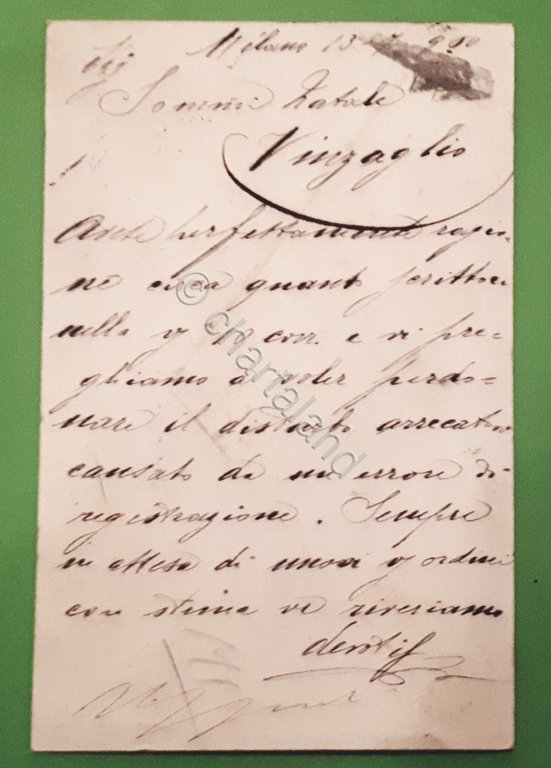 Milano 13
Sig
Sommi Natale
Vinzaglio
Avete perfettamente ragio-
ne circa quanto scrittoci
nella v/ corr. e vi pre-
ghiamo a voler perdo-
nare il disturbo arrecatovi
causato da un errore di
registrazione. Sempre
in attesa di nuovi v/ ordini
con stima vi riveriamo
devotis
© chartaland